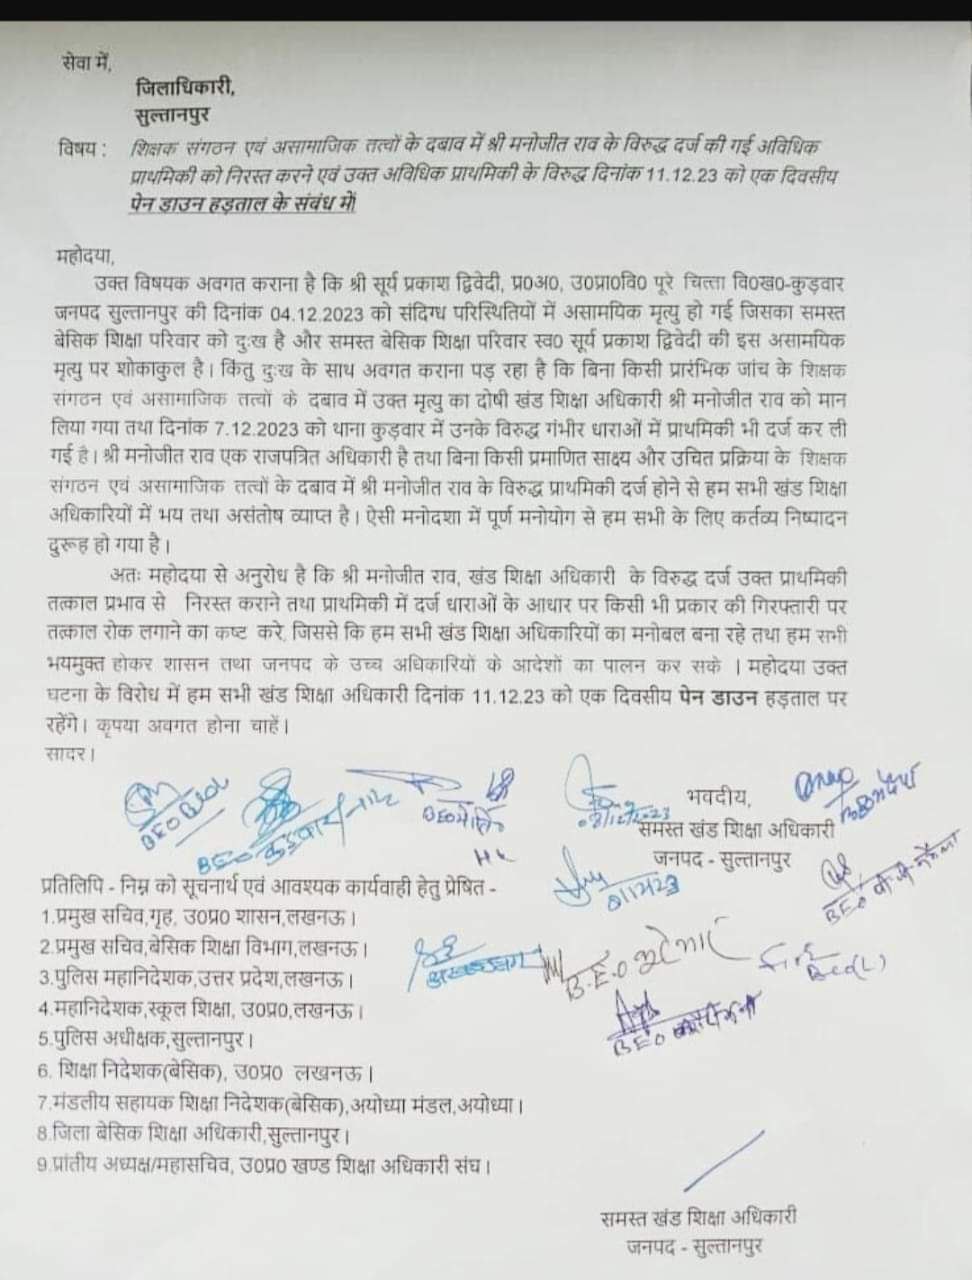 सेवा में,
जिलाधिकारी,
सुल्तानपुर
विषय : शिक्षक संगठन एवं असामाजिक तत्वों के दबाव में श्री मनोजीत राव के विरुद्ध दर्ज की गई अविधिक
प्राथमिकी को निरस्त करने एवं उक्त अविधिक प्राथमिकी के विरुद्ध दिनांक 11.12.23 को एक दिवसीय
पेन डाउन हड़ताल के संबंध में।
महोदया,
उक्त विषयक अवगत कराना है कि श्री सूर्य प्रकाश द्विवेदी, प्र०अ०, उ०प्रा०वि० पूरे चित्ता वि०ख०-कुड़वार
जनपद सुल्तानपुर की दिनांक 04.12.2023 को संदिग्ध परिस्थितियों में असामयिक मृत्यु हो गई जिसका समस्त
बेसिक शिक्षा परिवार को दुःख है और समस्त बेसिक शिक्षा परिवार स्व० सूर्य प्रकाश द्विवेदी की इस असामयिक
मृत्यु पर शोकाकुल है। किंतु दुःख के साथ अवगत कराना पड़ रहा है कि बिना किसी प्रारंभिक जांच के शिक्षक
संगठन एवं असामाजिक तत्वों के दबाव में उक्त मृत्यु का दोषी खंड शिक्षा अधिकारी श्री मनोजीत राव को मान
लिया गया तथा दिनांक 7.12.2023 को थाना कुड़वार में उनके विरुद्ध गंभीर धाराओं में प्राथमिकी भी दर्ज कर ली
गई है। श्री मनोजीत राव एक राजपत्रित अधिकारी है तथा बिना किसी प्रमाणित साक्ष्य और उचित प्रक्रिया के शिक्षक
संगठन एवं असामाजिक तत्वों के दबाव में श्री मनोजीत राव के विरुद्ध प्राथमिकी दर्ज होने से हम सभी खंड शिक्षा
अधिकारियों में भय तथा असंतोष व्याप्त है। ऐसी मनोदशा में पूर्ण मनोयोग से हम सभी के लिए कर्तव्य निष्पादन
दुरूह हो गया है।
अतः महोदया से अनुरोध है कि श्री मनोजीत राव, खंड शिक्षा अधिकारी के विरुद्ध दर्ज उक्त प्राथमिकी
तत्काल प्रभाव से निरस्त कराने तथा प्राथमिकी में दर्ज धाराओं के आधार पर किसी भी प्रकार की गिरफ्तारी पर
तत्काल रोक लगाने का कष्ट करे, जिससे कि हम सभी खंड शिक्षा अधिकारियों का मनोबल बना रहे तथा हम सभी
भयमुक्त होकर शासन तथा जनपद के उच्च अधिकारियों के आदेशों का पालन कर सके । महोदया उक्त
घटना के विरोध में हम सभी खंड शिक्षा अधिकारी दिनांक 11.12.23 को एक दिवसीय पेन डाउन हड़ताल पर
रहेंगे। कृपया अवगत होना चाहें।
सादर।
भवदीय,
समस्त खंड शिक्षा अधिकारी
जनपद - सुल्तानपुर
प्रतिलिपि - निम्न को सूचनार्थ एवं आवश्यक कार्यवाही हेतु प्रेषित -
1.प्रमुख सचिव,गृह, उ०प्र० शासन,लखनऊ।
2.प्रमुख सचिव,बेसिक शिक्षा विभाग,लखनऊ।
3.पुलिस महानिदेशक,उत्तर प्रदेश,लखनऊ।
4.महानिदेशक,स्कूल शिक्षा, उ०प्र०,लखनऊ।
5.पुलिस अधीक्षक,सुल्तानपुर।
6. शिक्षा निदेशक(बेसिक), उ०प्र० लखनऊ।
7.मंडलीय सहायक शिक्षा निदेशक(बेसिक),अयोध्या मंडल,अयोध्या।
8.जिला बेसिक शिक्षा अधिकारी,सुल्तानपुर।
9.प्रांतीय अध्यक्ष/महासचिव, उ०प्र० खण्ड शिक्षा अधिकारी संघ।
समस्त खंड शिक्षा अधिकारी
जनपद - सुल्तानपुर